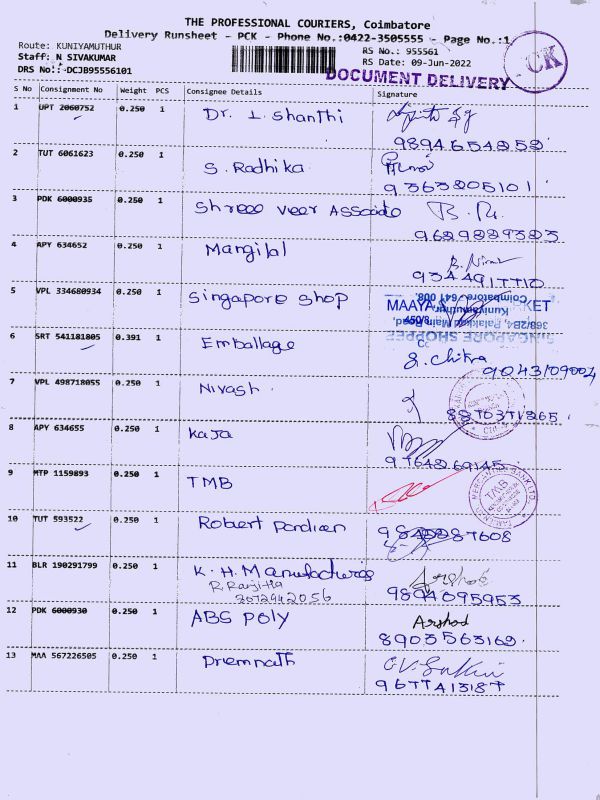 THE PROFESSIONAL COURIERS, Coimbatore
Delivery Runsheet - PCK - Phone No.:0422-3505555 - Page No.:1
Route: KUNIYAMUTHUR
RS No.: 955561
Staff: N SIVAKUMAR
RS Date: 09-Jun-2022
DRS No.: DCJB95556101
DOCUMENT DELIVERY
CK
S No Consignment No Weight PCS Consignee Details Signature
1 UPT 2060752 0.250 1 Dr. L. Shanthi
9894654252
2 TUT 6061623 0.250 1 S. Radhika
9363205101
3 PDK 6000935 0.250 1 Shree veer Associate B. R.
9629229323
4 APY 634652 0.250 1 Mangilal
5 VPL 334680934 0.250 1 Singapore Shop
MAAYA
368/2B4, Palakkad Main Road,
Kuniyamuthur
Coimbatore - 641 008.
SINGAPORE SHOPPEE
6 SRT 541181805 0.391 1 Emballage
S. Chitra
9043109004
7 VPL 498718055 0.250 1 Nivash.
8 APY 634655 0.250 1 Kaja
9 MTP 1159893 0.250 1 TMB
TAMILNAD MERCANTILE BANK LTD.
TMB
10 TUT 593522 0.250 1 Robert Pandien
11 BLR 190291799 0.250 1 K. H. Manufactures Arshad
R. Ranjitha 9894095953
8072942056
12 PDK 6000930 0.250 1 ABS Poly Arshad
8903563169
13 MAA 567226505 0.250 1 Premnath